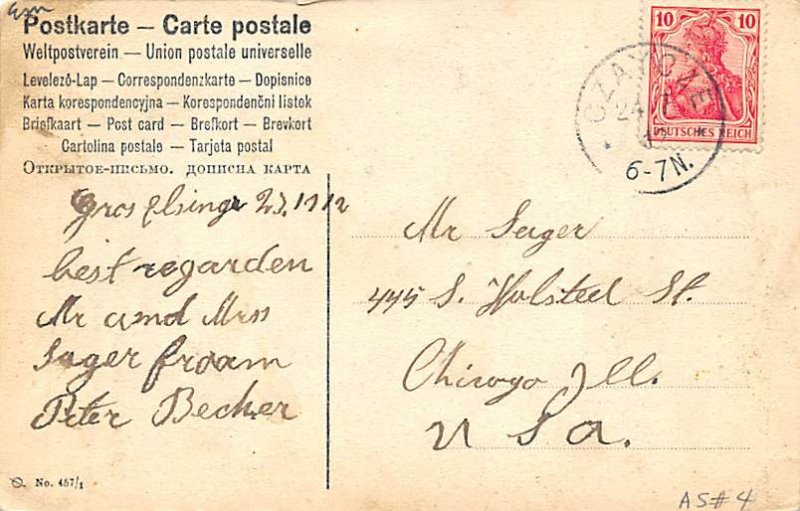 Esm
Postkarte — Carte postale
Weltpostverein — Union postale universelle
Levelező-Lap — Correspondenzkarte — Dopisnice
Karta korespondencyjna — Korespondenční listek
Briefkaart — Post card — Brefkort — Brevkort
Cartolina postale — Tarjeta postal
Открытое-письмо. дописна карта
10 10
DEUTSCHES REICH
CZAYCZE
24
6-7N.
best regarden
Mr and Mrss
Sager froam
Peter Becher
Mr Sager
445 S. Holsted St.
Chicago Ill.
U S a.
No. 457/1
AS#4